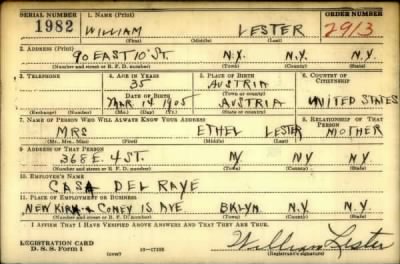 SERIAL NUMBER 1. NAME (Print) ORDER NUMBER
1982 WILLIAM LESTER 2913
(First) (Middle) (Last)
2. ADDRESS (Print)
90 EAST 10 ST. N.Y. N.Y. N.Y.
(Number and street or R. F. D. number) (Town) (County) (State)
3. TELEPHONE 4. AGE IN YEARS 5. PLACE OF BIRTH 6. COUNTRY OF CITIZENSHIP
35 AUSTRIA
DATE OF BIRTH
MAR. 14 1905 AUSTRIA UNITED STATES
(Exchange) (Number) (Mo.) (Day) (Yr.) (State or county)
7. NAME OF PERSON WHO WILL ALWAYS KNOW YOUR ADDRESS 8. RELATIONSHIP OF THAT PERSON
MRS ETHEL LESTER MOTHER
(Mr., Mrs., Miss) (First) (Middle) (Last)
9. ADDRESS OF THAT PERSON
368 E. 4 ST. NY N.Y. N.Y.
(Number and street or R. F. D. number) (Town) (County) (State)
10. EMPLOYER'S NAME
CASA DEL RAYE
11. PLACE OF EMPLOYMENT OR BUSINESS
NEW KIRK & CONEY IS AVE BKLYN N.Y.
(Number and street or R. F. D. number) (Town) (County) (State)
I AFFIRM THAT I HAVE VERIFIED ABOVE ANSWERS AND THAT THEY ARE TRUE.
REGISTRATION CARD
D. S. S. Form 1 (over) William Lester
(Registrant's signature)